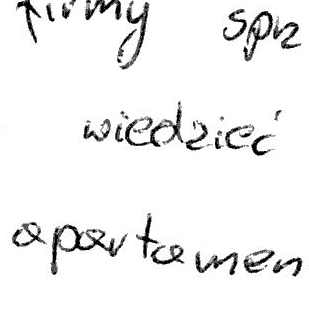 firmy spr
wiedzieć
apartamen